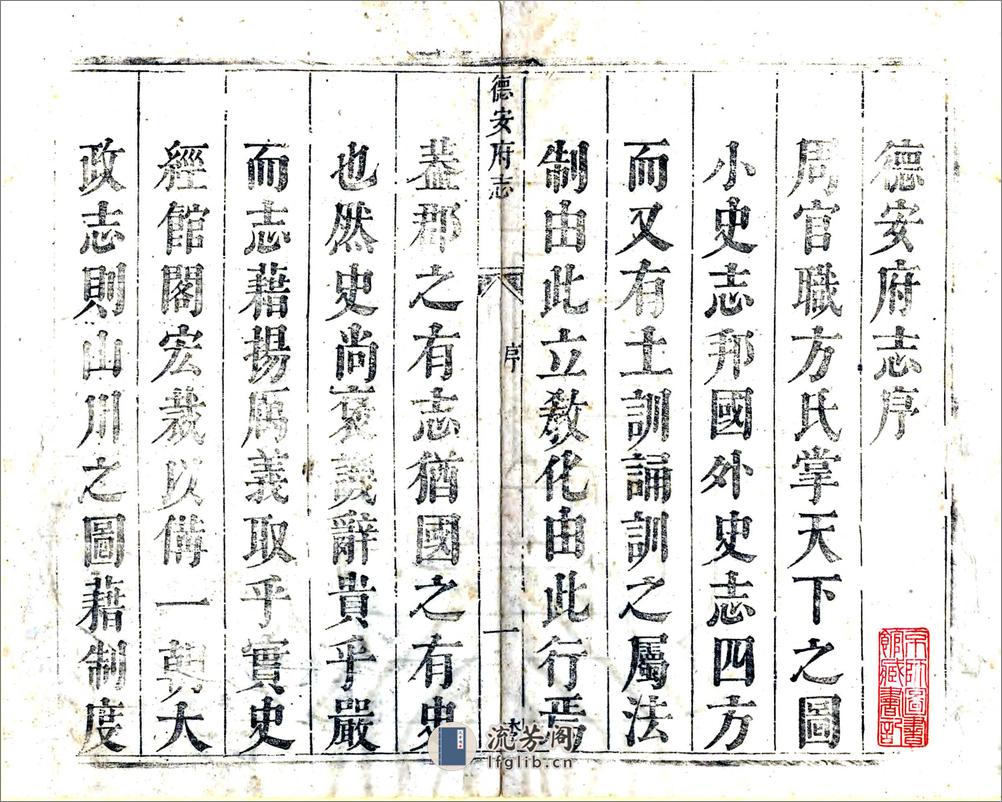 德安府志序
周官職方氏掌天下之圖
小史志邦國外史志四方
而又有土訓誦訓之屬法
制由此立教化由此行焉
德安府志
序
一
蓋郡之有志猶國之有史
也然史尚褒譏辭貴乎嚴
而志藉揚厲義取乎實史
經館閣宏裁以備一朝大
政志則山川之圖藉制度
京師圖書
館藏書記
流芳阁
lfglib.cn